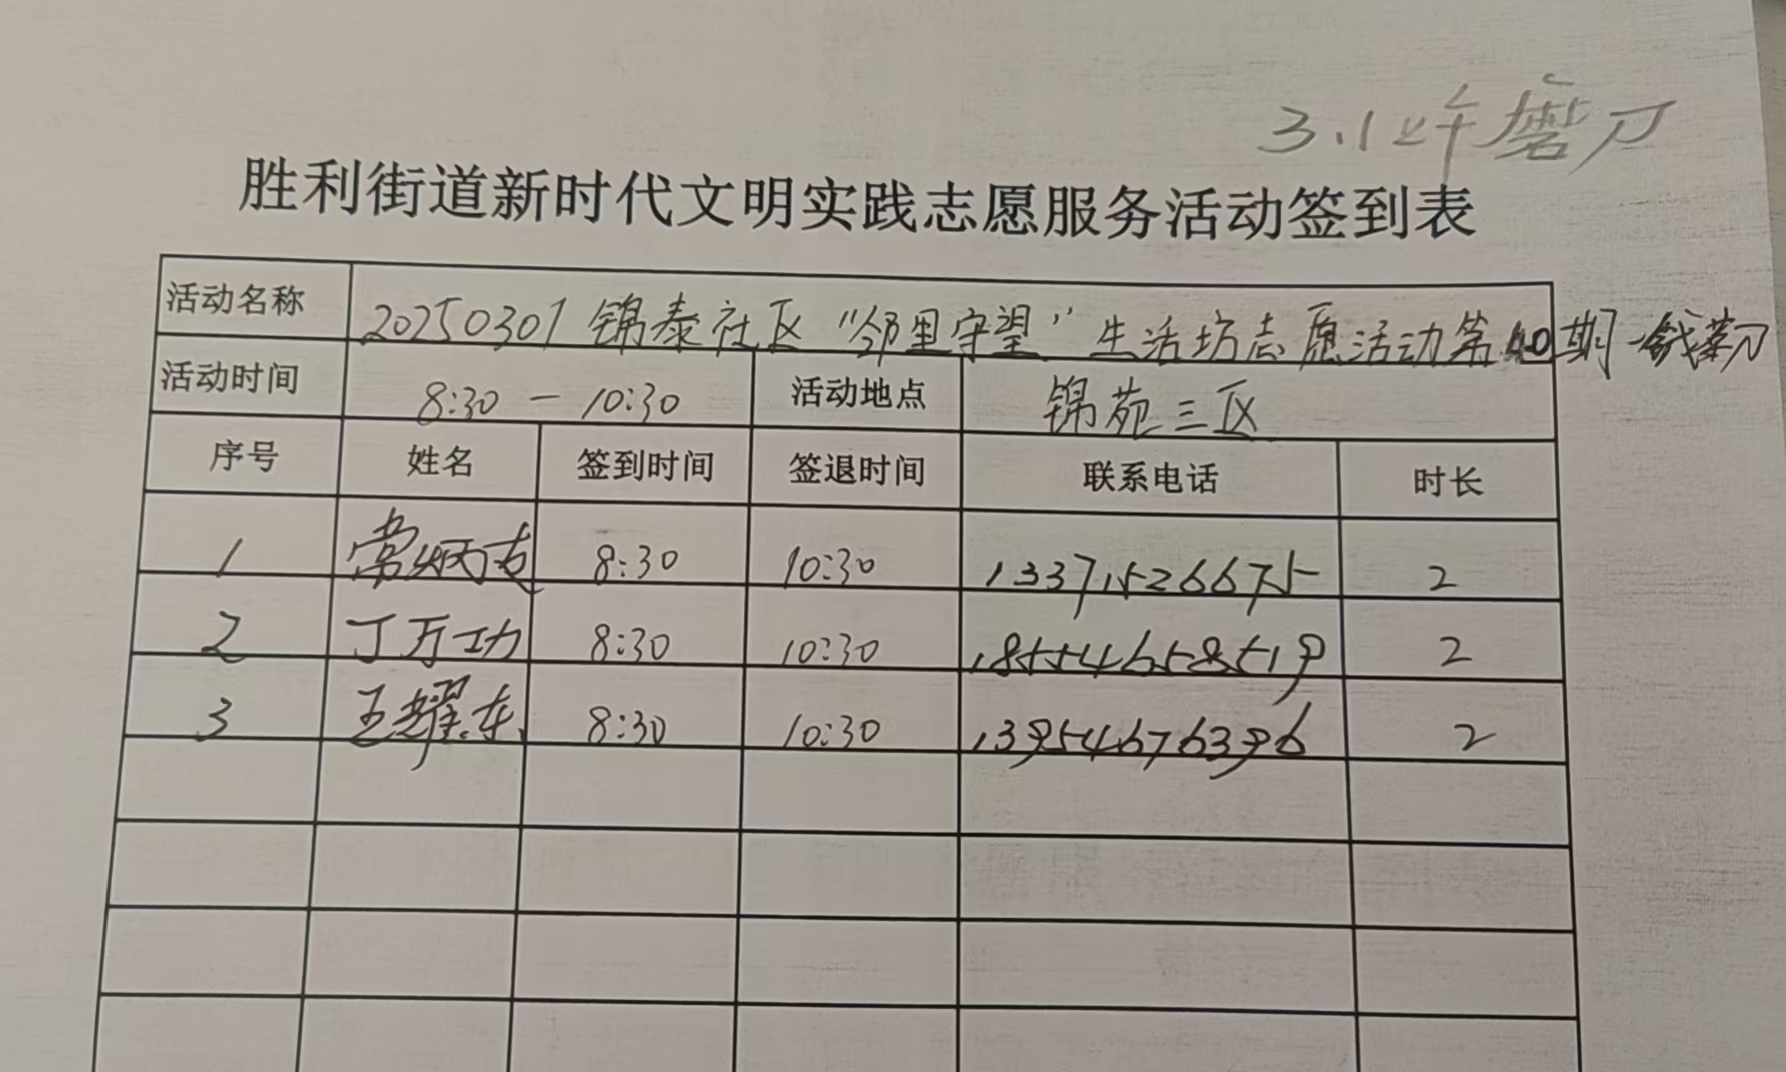 3.1上午磨刀
胜利街道新时代文明实践志愿服务活动签到表
活动名称 20250301锦泰社区“邻里守望”生活坊志愿活动第40期
活动时间 8:30 - 10:30 活动地点 锦苑三区
序号 姓名 签到时间 签退时间 联系电话 时长
1 常炳 8:30 10:30 13371526675 2
2 丁万功 8:30 10:30 18554658519 2
3 王耀东 8:30 10:30 13954676396 2